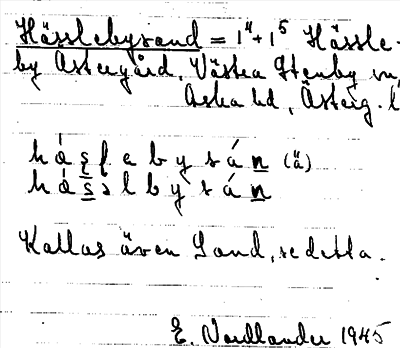 Hässlebysand = 1⁴+1⁵ Hässle-
by Östergård, Västra Stenby sn,
Aska hd, Österg. l
håslebysán (ä)
håsslbysán
Kallas även Sand, se detta.
E. Nordlander 1945